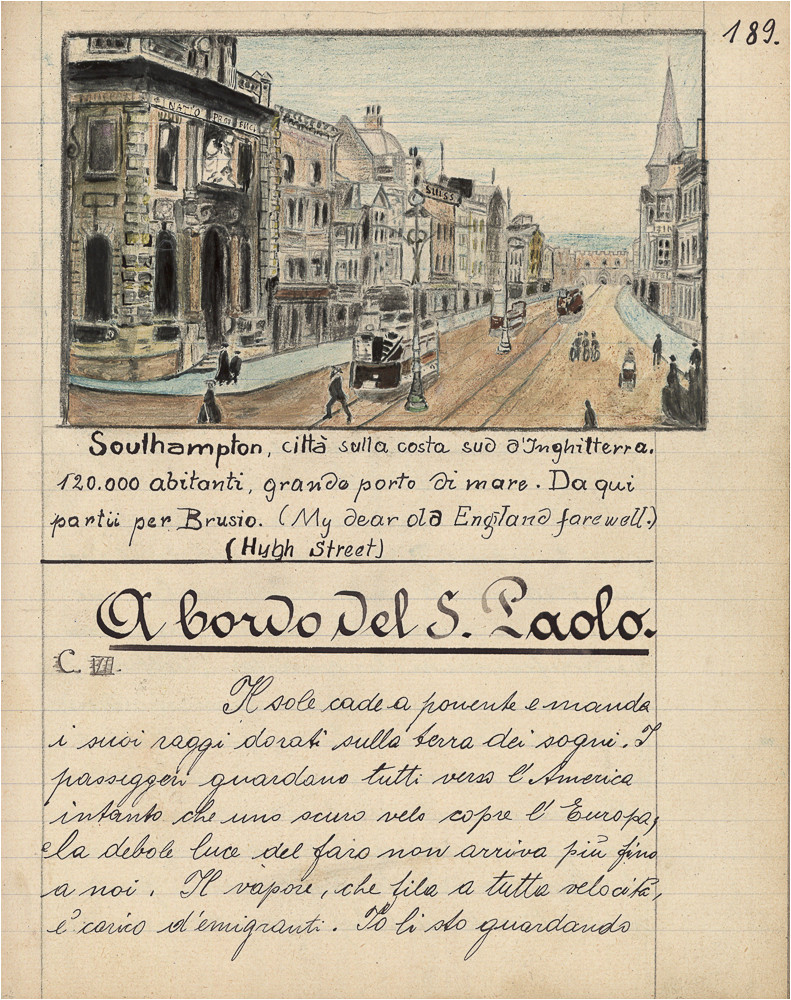 189.
NAT'O PROV BNC
SWISS
Southampton, città sulla costa sud d'Inghilterra.
120.000 abitanti, grande porto di mare. Da qui
partii per Brusio. (My dear old England farewell.)
(Hugh Street)
A bordo del S. Paolo.
C. VII.
Il sole cade a ponente e manda
i suoi raggi dorati sulla terra dei sogni. I
passeggeri guardano tutti verso l'America
intanto che uno scuro velo copre l'Europa,
e la debole luce del faro non arriva più fino
a noi. Il vapore, che fila a tutta velocità,
è carico d'emigranti. Io li sto guardando